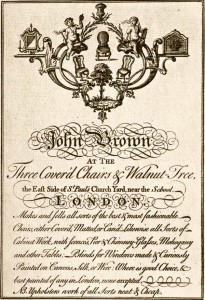 John Brown
AT THE
Three Cover'd Chairs & Walnut Tree,
the East Side of St. Paul's Church Yard, near the School,
LONDON.
Makes and sells all sorts of the best & most fashionable
Chairs, either Cover'd, Matted, or Cand. Likewise all Sorts of
Cabinet Work, with Sconces, Pier & Chimney-Glasses, Mahogany
and other Tables. Blinds for Windows made & Curiously
Painted on Canvas, Silk, or Wire. Where is good Choice, &
best painted of any in London, none excepted.
NB. Upholsters work of all Sorts neat & Cheap.